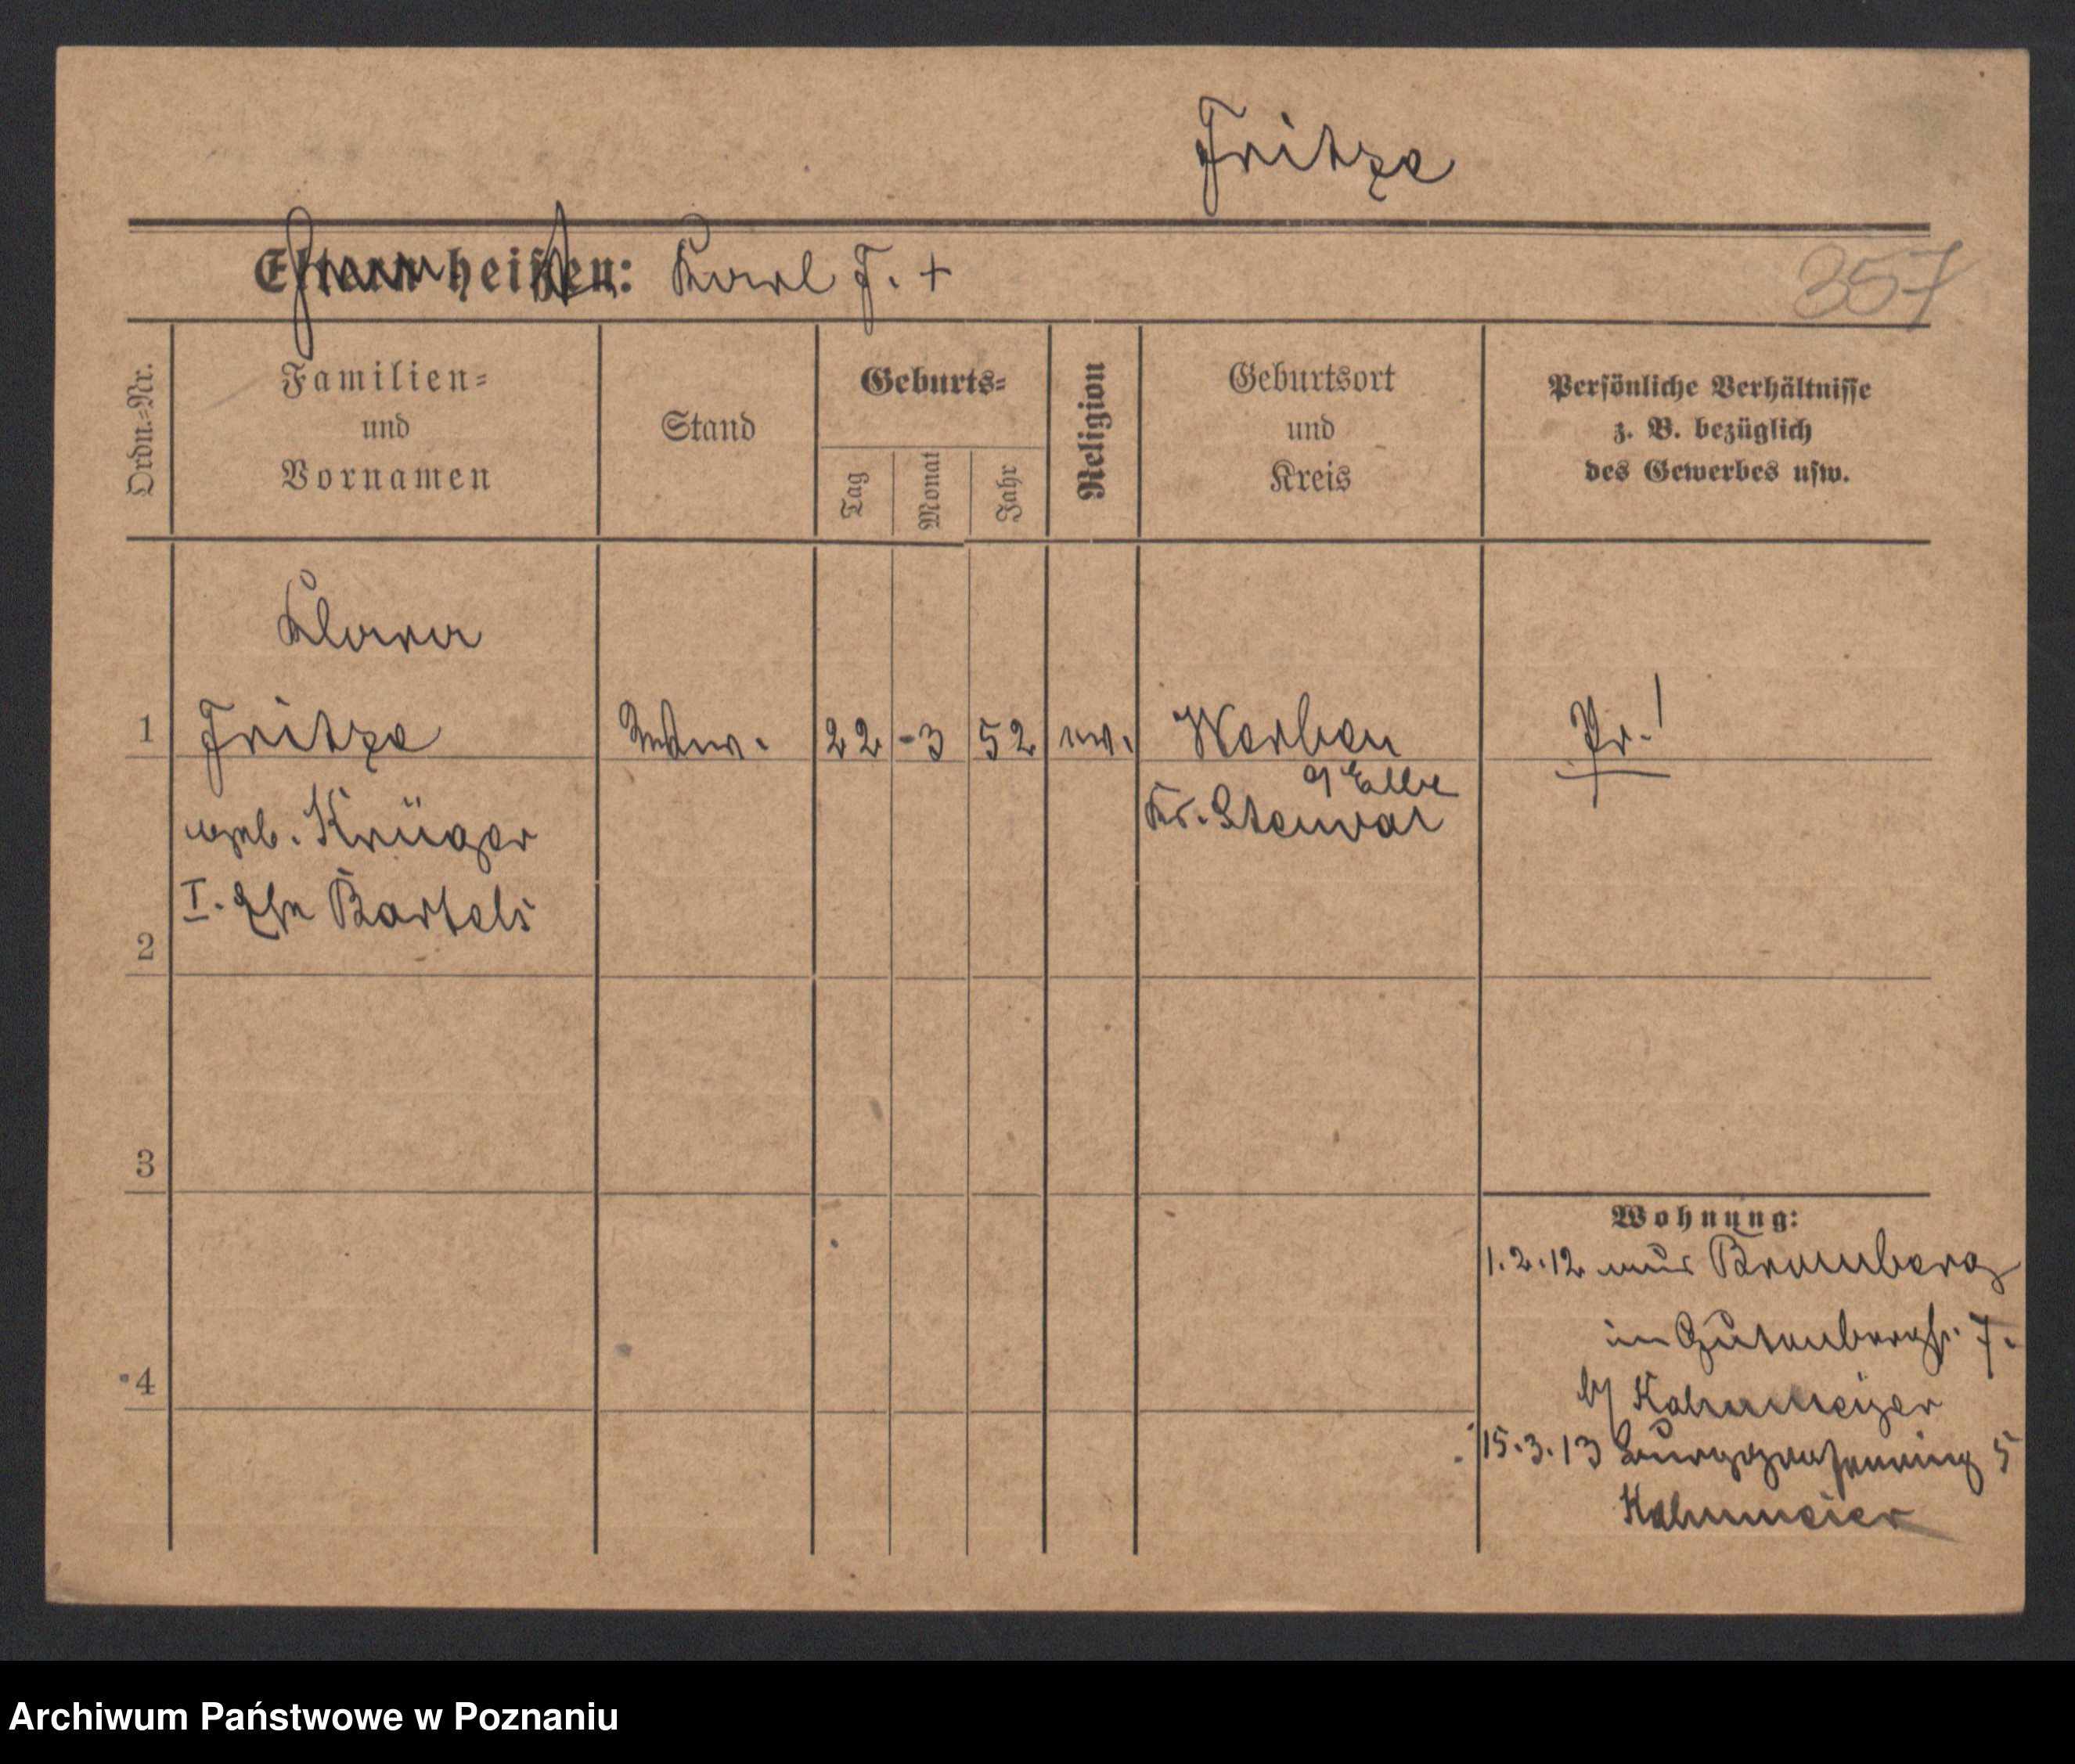 Fritze
Eltern heißen: Karl F. +
357
Ordn.=Nr.
Familien=
und
Vornamen
Stand
Geburts=
Tag
Monat
Jahr
Religion
Geburtsort
und
Kreis
Persönliche Verhältnisse
z. B. bezüglich
des Gewerbes usw.
Klara
1 Fritze Wtw. 22 -3 52 ev. Werben Pr.!
a/ Elbe
geb. Krüger Kr.
I. Ehe Bartels
2
3
4
Wohnung:
1.2.12 aus Bromberg
in Gutenbergstr. 7.
b/ Kahnmeijer
15.3.13 Burggrafenring 5
Kahnmeier
Archiwum Państwowe w Poznaniu